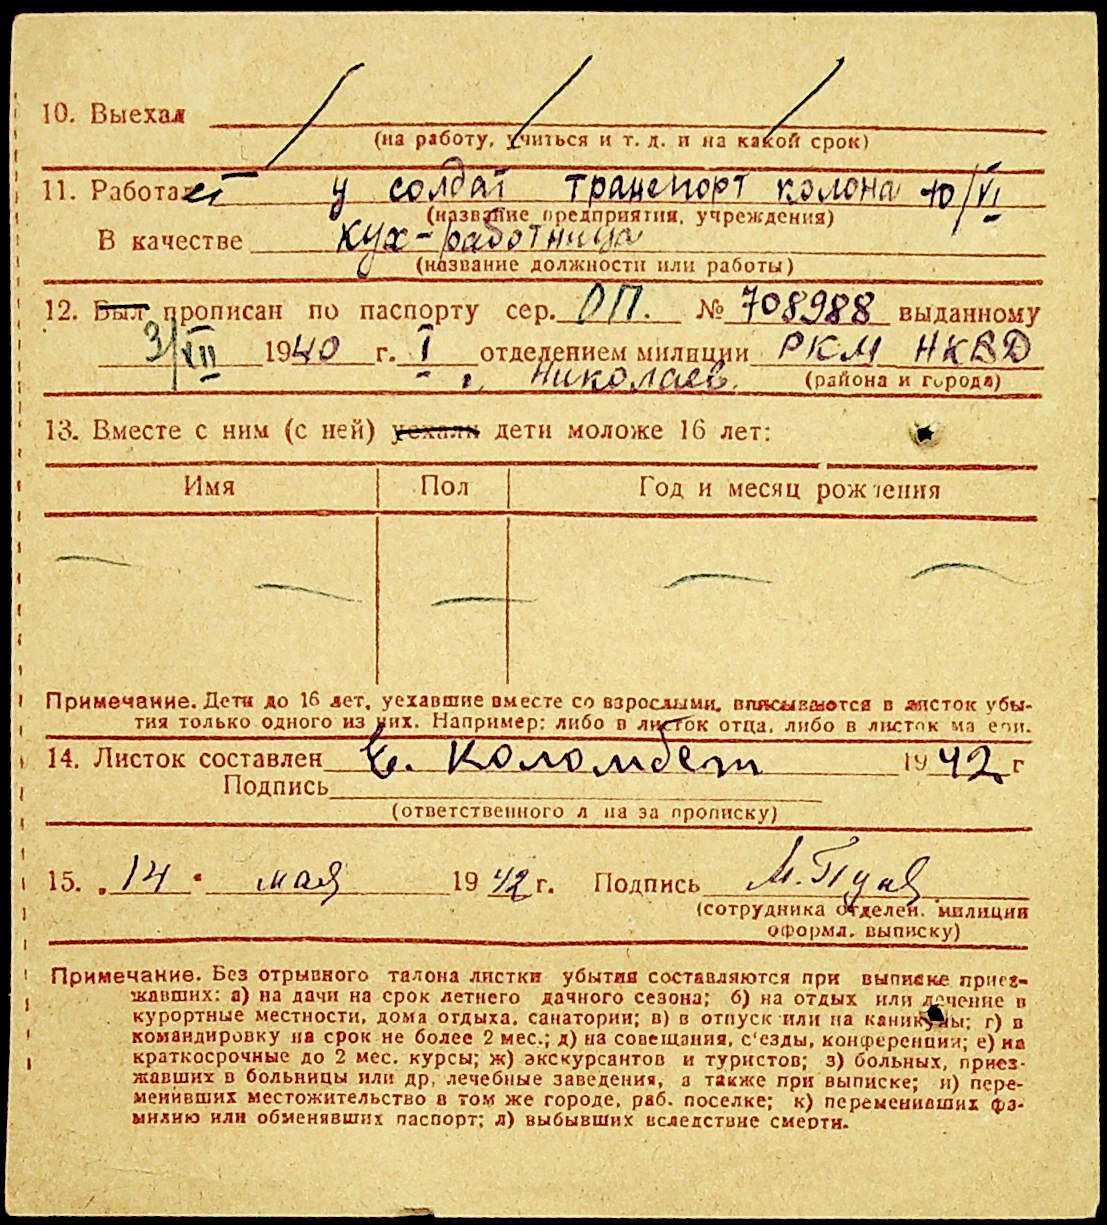 10. Выехал
(на работу, учиться и т. д. и на какой срок)
11. Работает у солдат транспорт колона 10/VI
(название предприятия, учреждения)
В качестве кух-работница
(название должности или работы)
12. Был прописан по паспорту сер. ОП. № 708988 выданному
3/VII 1940 г. I отделением милиции РКМ НКВД
г. Николаев. (района и города)
13. Вместе с ним (с ней) уехали дети моложе 16 лет:
Имя Пол Год и месяц рождения
Примечание. Дети до 16 лет, уехавшие вместе со взрослыми, вписываются в листок убы-
тия только одного из них. Например: либо в листок отца, либо в листок матери.
14. Листок составлен Е. Коломбет 1942 г
Подпись
(ответственного лица за прописку)
15. 14 мая 1942 г. Подпись
(сотрудника отделен. милиции
оформл. выписку)
Примечание. Без отрывного талона листки убытия составляются при выписке приез-
жавших: а) на дачи на срок летнего дачного сезона; б) на отдых или лечение в
курортные местности, дома отдыха, санатории; в) в отпуск или на каникулы; г) в
командировку на срок не более 2 мес.; д) на совещания, с'езды, конференции; е) на
краткосрочные до 2 мес. курсы; ж) экскурсантов и туристов; з) больных, приез-
жавших в больницы или др, лечебные заведения, а также при выписке; и) пере-
менивших местожительство в том же городе, раб. поселке; к) переменивших фа-
милию или обменявших паспорт; л) выбывших вследствие смерти.